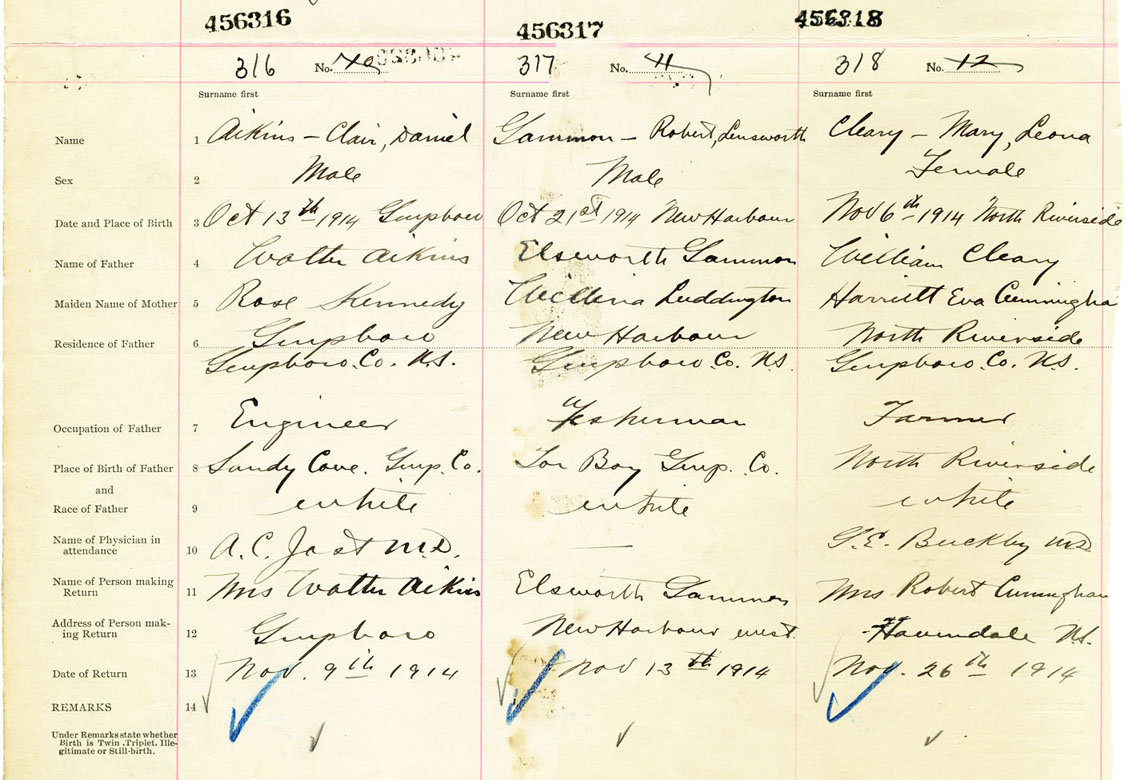 456316 456317 456318
316 No. 10 317 No. 11 318 No. 12
Surname first Surname first Surname first
Name 1 Aikins – Clair, Daniel Gammon – Robert, Lensworth Cleary – Mary, Leona
Sex 2 Male Male Female
Date and Place of Birth 3 Oct 13th 1914 Guysboro Oct 21st 1914 New Harbour Nov 6th 1914 North Riverside
Name of Father 4 Walter Aikins Elsworth Gammon William Cleary
Maiden Name of Mother 5 Rose Kennedy Luddington Harriett Eva Cunningha
Residence of Father 6 Guysboro New Harbour North Riverside
Guysboro. Co. N.S. Guysboro Co. N.S. Guysboro Co. N.S.
Occupation of Father 7 Engineer Fisherman Farmer
Place of Birth of Father 8 Sandy Cove. Guys. Co. Tor Bay Guys. Co. North Riverside
and
Race of Father 9 white white white
Name of Physician in
attendance 10 A. C. Jost M.D. — G. E. Buckley MD
Name of Person making
Return 11 Mrs Walter Aikins Elsworth Gammon Mrs Robert Cunningham
Address of Person mak-
ing Return 12 Guysboro New Harbour west N.S.
Date of Return 13 Nov. 9th 1914 Nov 13th 1914 Nov. 26th 1914
REMARKS 14
Under Remarks state whether
Birth is Twin, Triplet, Ille-
gitimate or Still-birth.